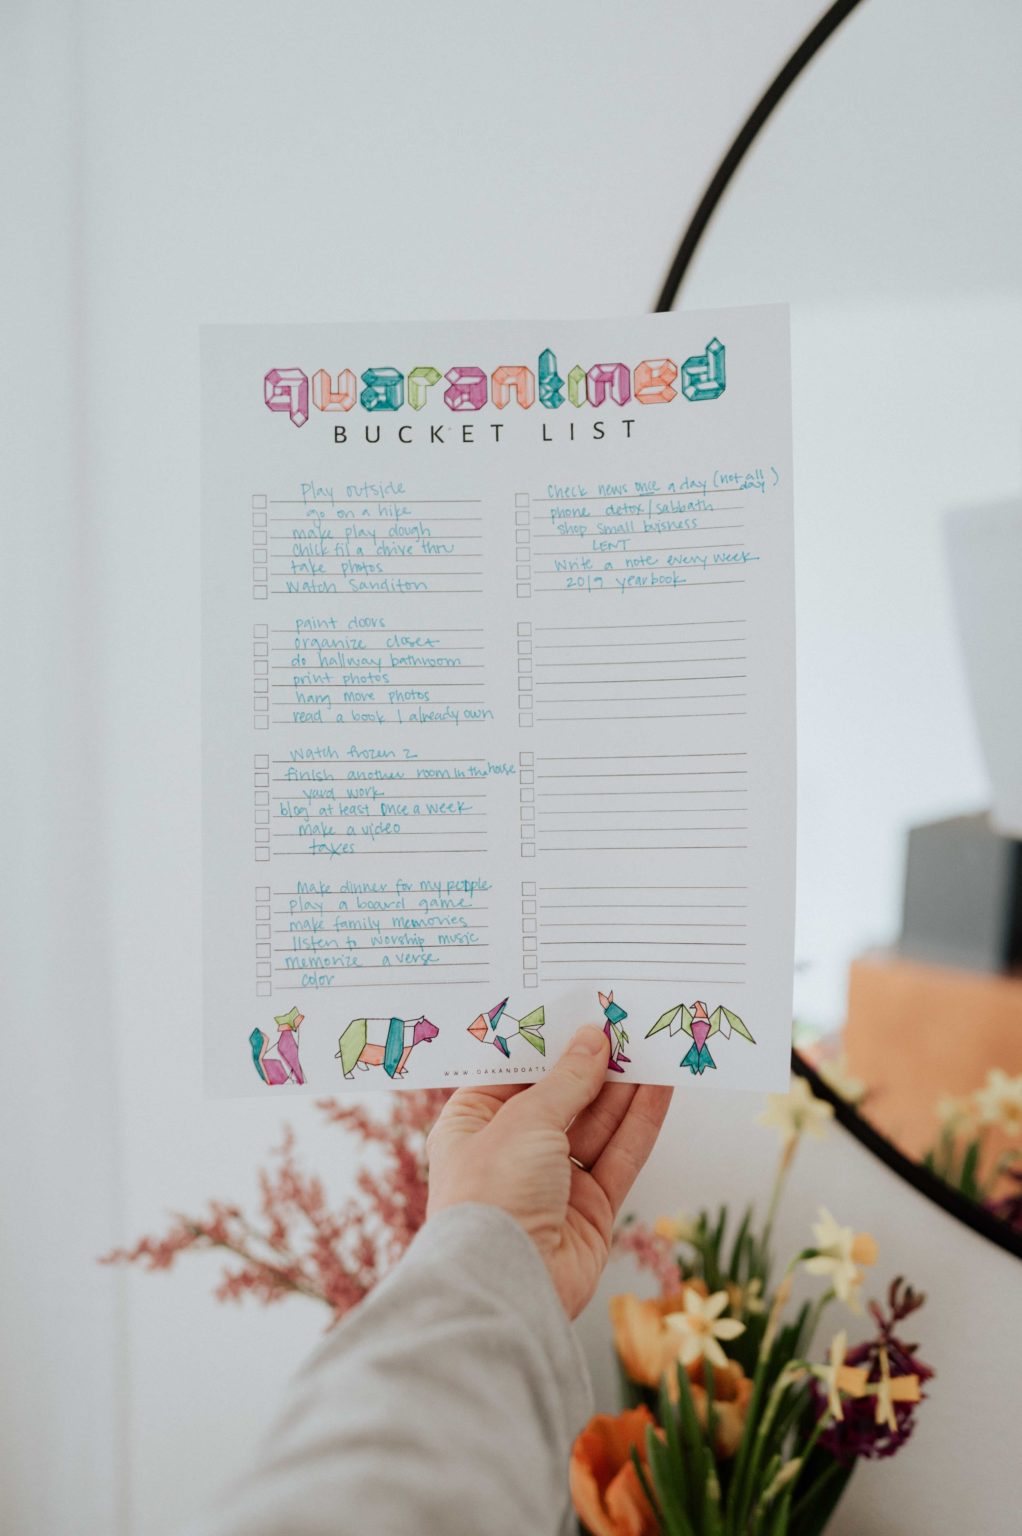 quarantined
BUCKET LIST
Play outside
go on a hike
make play dough
chick fil a drive thru
take photos
Watch Sanditon
paint doors
organize closet
do hallway bathroom
print photos
hang more photos
read a book I already own
Watch frozen 2
finish another room in the house
yard work
blog at least once a week
make a video
taxes
Make dinner for my people
play a board game
make family memories
listen to worship music
memorize a verse
color
Check news once a day (not all day)
phone detox/sabbath
shop small buisness
LENT
Write a note every week
2019 yearbook
WWW.OAKANDOATS.